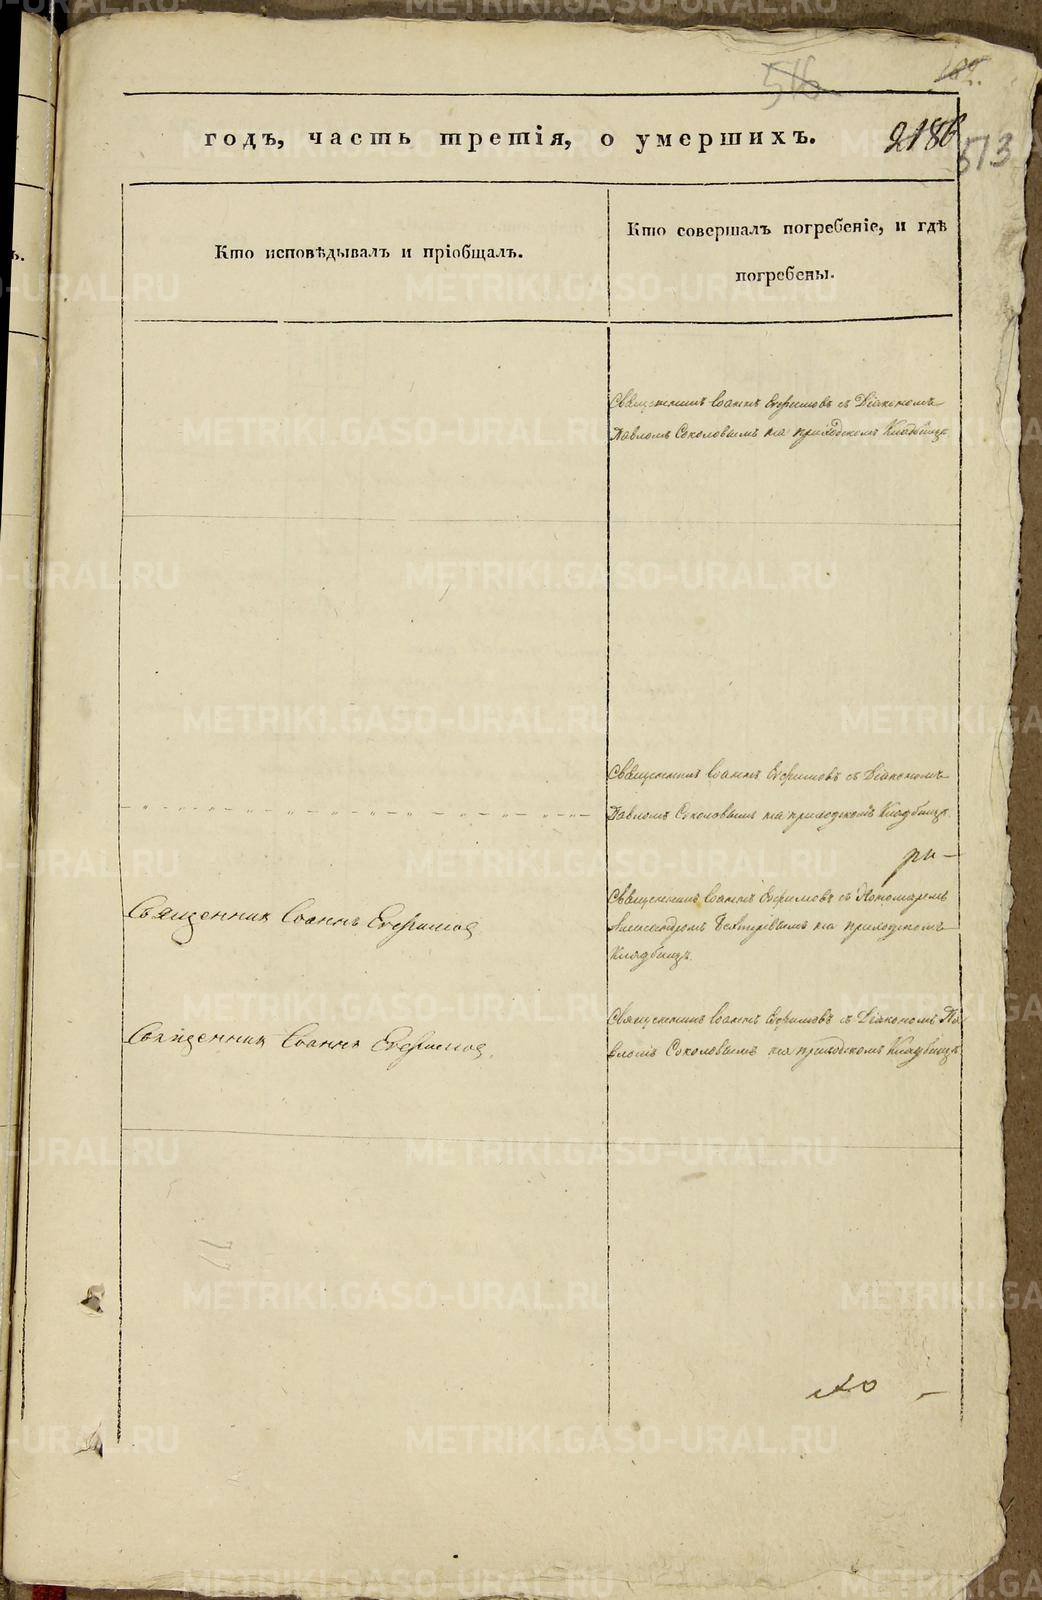 516
годъ, часть третія, о умершихъ.
2186
513
Кто исповѣдывалъ и пріобщалъ.
Кто совершалъ погребеніе, и гдѣ
погребены.
Священникъ Іоаннъ Ефримовъ съ Діакономъ
Павломъ Соколовымъ на приходскомъ Кладбищѣ
Священникъ Іоаннъ Ефримовъ съ Діакономъ
Павломъ Соколовымъ на приходскомъ Кладбищѣ
Священникъ Іоаннъ Ефримовъ
Священникъ Іоаннъ Ефримовъ съ Пономаремъ
Александромъ на приходскомъ
Кладбищѣ.
Священникъ Іоаннъ Ефримовъ
Священникъ Іоаннъ Ефримовъ съ Діакономъ Па
вломъ Соколовымъ на приходскомъ Кладбищѣ
METRIKI.GASO-URAL.RU